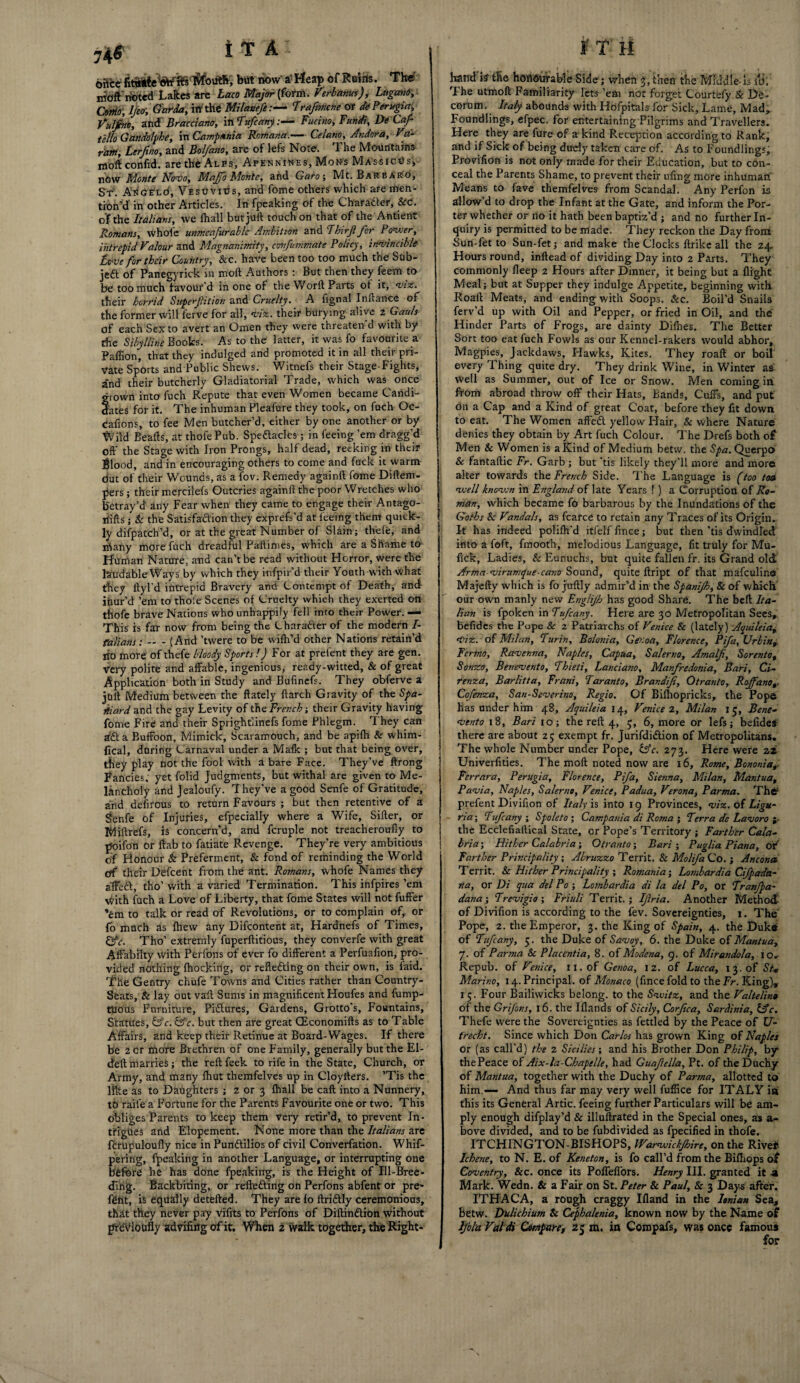 746
I T A
once situate on its Mouth, but now a Heap of Ruins. The
most noted Lakes are Laco Major (form. Verbanus), Lugano,
Como, Iseo, Garda, in the Milanese:— Trasimene or de Perugia,
Vulsino, and Bracciano, in Tuscany:— Fucino, Fundi, De Cas-
tello Gandolphe, in Campania Romana.— Celano, Andora, Va-
ram, Lersino, and Bolsano, are of less Note. The Mountains
most consid. are the ALPS, APENNINES, MONS MASSICUS,
now Monte Novo, Masso Monte, and Garo; Mt. BARBARO,
ST. ANGELO, VESUVIUS, and some others which are men-
tion'd in other Articles. In speaking of the Character, &c.
of the Italians, we shall but just touch on that of the Antient
Romans, whose unmeasurable Ambition and Thirst for Power,
intrepid Valour and Magnanimity, consummate Policy, invincible
Love for their Country, &c. have been too too much the Sub-
ject of Panegyrick in most Authors : But then they seem to
be too much favour'd in one of the Worst Parts of it, viz.
their horrid Superstition and Cruelty. A signal Instance of
the former will serve for all, viz. their burying alive 2 Gauls
of each Sex to avert an Omen they were threaten'd with by
the Sibylline Books. As to the latter, it was so favourite a
Passion, that they indulged and promoted it in all their pri-
vate Sports and Public Shews. Witness their Stage-Fights,
and their butcherly Gladiatorial Trade, which was once
grown into such Repute that even Women became Candi-
dates for it. The inhuman Pleasure they took, on such Oc-
casions, to see Men butcher'd, either by one another or by
Wild Beasts, at those Pub. Spectacles; in seeing 'em dragg'd
off the Stage with Iron Prongs, half dead, reeking in their
Blood, and in encouraging others to come and suck it warm
out of their Wounds, as a sov. Remedy against some Distem-
pers; their merciless Outcries against the poor Wretches who
betray'd any Fear when they came to engage their Antago-
nists; & the Satisfaction they express'd at seeing them quick-
ly dispatch'd, or at the great Number of Slain; these, and
many more such dreadful Pastimes, which are a Shame to
Human Nature, and can't be read without Horror, were the
laudable Ways by which they inspir'd their Youth with what
they styl'd intrepid Bravery and Contempt of Death, and
inur'd 'em to those Scenes of Cruelty which they exerted on
those brave Nations who unhappily fell into their Power. —
This is far now from being the Character of the modern I-
talians: -- - (And 'twere to be wish'd other Nations retain'd
no more of these bloody Sports!) For at present they are gen.
very polite and affable, ingenious, ready-witted, & of great
Application both in Study and Business. They observe a
just Medium between the stately starch Gravity of the Spa-
niard and the gay Levity of the French; their Gravity having
some Fire and their Sprightliness some Phlegm. They can
act a Buffoon, Mimick, Scaramouch, and be apish & whim-
sical, during Carnaval under a Mask; but that being over,
they play not the fool with a bare Face. They've strong
Fancies, yet solid Judgments, but withal are given to Me-
lancholy and Jealousy. They've a good Sense of Gratitude,
and desirous to return Favours ; but then retentive of a
Sense of Injuries, especially where a Wife, Sister, or
Mistress, is concern'd, and scruple not treacherously to
poison or stab to satiate Revenge. They're very ambitious
of Honour & Preferment, & fond of reminding the World
of their Descent from the ant. Romans, whose Names they
affect, tho' with a varied Termination. This inspires 'em
with such a Love of Liberty, that some States will not suffer
'em to talk or read of Revolutions, or to complain of, or
so much as shew any Discontent at, Hardness of Times,
&c. Tho' extremly superstitious, they converse with great
Affability with Persons of ever so different a Persuasion, pro-
vided nothing shocking, or reflecting on their own, is said.
The Gentry chuse Towns and Cities rather than Country-
Seats, & lay out vast Sums in magnificent Houses and sump-
tuous Furniture, Pictures, Gardens, Grotto's, Fountains,
Statues, &c. &c. but then are great Œconomists as to Table
Affairs, and keep their Retinue at Board-Wages. If there
be 2 or more Brethren of one Family, generally but the El-
dest marries; the rest seek to rise in the State, Church, or
Army, and many shut themselves up in Cloysters. 'Tis the
like as to Daughters; 2 or 3 shall be cast into a Nunnery,
to raise a Fortune for the Parents Favourite one or two. This
obliges Parents to keep them very retir'd, to prevent In-
trigues and Elopement. None more than the Italians are
scrupulously nice in Punctilios of civil Conversation. Whis-
pering, speaking in another Language, or interrupting one
before he has done speaking, is the Height of Ill-Bree-
ding. Backbiting, or reflecting on Persons absent or pre-
sent, is equally detested. They are so strictly ceremonious,
that they never pay visits to Persons of Distinction without
previously advising of it. When 2 walk together, the Right-
I T H
hand is the honourable Side; when 3, then the Middle is so.
The utmost Familiarity lets 'em not forget Courtesy & De-
corum. Italy abounds with Hospitals for Sick, Lame, Mad,
Foundlings, espec. for entertaining Pilgrims and Travellers.
Here they are sure of a kind Reception according to Rank,
and if Sick of being duely taken care of. As to Foundlings,
Provision is not only made for their Education, but to con-
ceal the Parents Shame, to prevent their using more inhuman
Means to save themselves from Scandal. Any Person is
allow'd to drop the Infant at the Gate, and inform the Por-
ter whether or no it hath been baptiz'd ; and no further In-
quiry is permitted to be made. They reckon the Day from
Sun-set to Sun-set; and make the Clocks strike all the 24
Hours round, instead of dividing Day into 2 Parts. They
commonly sleep 2 Hours after Dinner, it being but a slight
Meal; but at Supper they indulge Appetite, beginning with
Roast Meats, and ending with Soops. &c. Boil'd Snails
serv'd up with Oil and Pepper, or fried in Oil, and the
Hinder Parts of Frogs, are dainty Dishes. The Better
Sort too eat such Fowls as our Kennel-rakers would abhor,
Magpies, Jackdaws, Hawks, Kites. They roast or boil
every Thing quite dry. They drink Wine, in Winter as
well as Summer, out of Ice or Snow. Men coming in
from abroad throw off their Hats, Bands, Cuffs, and put
on a Cap and a Kind of great Coat, before they sit down
to eat. The Women affect yellow Hair, & where Nature
denies they obtain by Art such Colour. The Dress both of
Men & Women is a Kind of Medium betw. the Spa. Querpo
& fantastic Fr. Garb ; but 'tis likely they'll more and more
alter towards the French Side. The Language is (too too
well known in England of late Years !) a Corruption of Ro-
man, which became so barbarous by the Inundations of the
Goths & Vandals, as scarce to retain any Traces of its Origin.
It has indeed polish'd itself since; but then 'tis dwindled
into a soft, smooth, melodious Language, fit truly for Mu-
sick, Ladies, & Eunuchs, but quite fallen fr. its Grand old
Arma-virumque-cano Sound, quite stript of that masculine
Majesty which is so justly admir'd in the Spanish, & of which
our own manly new English has good Share. The best Ita-
lian is spoken in Tuscany. Here are 30 Metropolitan Sees,
besides the Pope & 2 Patriarchs of Venice & (lately) Aquileia,
viz. of Milan, Turin, Bolonia, Genoa, Florence, Pisa, Urbin,
Fermo, Ravenna, Naples, Capua, Salerno, Amalfi, Sorento,
Sonzo, Benevento, Thieti, Lanciano, Manfredonia, Bari, Ci-
renza, Barlitta, Frani, Taranto, Brandisi, Otranto, Rossano,
Cosenza, San-Severino, Regio. Of Bishopricks, the Pope
has under him 48, Aquileia 14, Venice 2, Milan 15, Bene-
vento 18, Bari 10; the rest 4, 5, 6, more or less; besides
there are about 25 exempt fr. Jurisdiction of Metropolitans.
The whole Number under Pope, &c. 273. Here were 22
Univerfities. The most noted now are 16, Rome, Bononia,
Ferrara, Perugia, Florence, Pisa, Sienna, Milan, Mantua,
Pavia, Naples, Salerno, Venice, Padua, Verona, Parma. The
present Division of Italy is into 19 Provinces, viz. of Ligu-
ria; Tuscany ; Spoleto ; Campania di Roma ; Terra de Lavoro ;
the Ecclesiastical State, or Pope's Territory ; Farther Cala-
bria; Hither Calabria; Otranto; Bari ; Puglia Piana, or
Farther Principality; Abruzzo Territ. & Molisa Co.; Ancona
Territ. & Hither Principality ; Romania; Lombardia Cispada-
na, or Di qua del Po ; Lombardia di la del Po, or Transpa-
dana; Trevigio; Friuli Territ.; Istria. Another Method
of Division is according to the sev. Sovereignties, 1. The
Pope, 2. the Emperor, 3. the King of Spain, 4. the Duke
of Tuscany, 5. the Duke of Savoy, 6. the Duke of Mantua,
7. of Parma & Placentia, 8. of Modena, 9. of Mirandola, 10.
Repub. of Venice, 11. of Genoa, 12. of Lucca, 13. of St.
Marino, 14. Principal. of Monaco (since sold to the Fr. King),
15. Four Bailiwicks belong. to the Switz, and the Valteline
of the Grisons, 16. the Islands of Sicily, Corsica, Sardinia, &c.
These were the Sovereignties as settled by the Peace of U-
trecht. Since which Don Carlos has grown King of Naples
or (as call'd) the 2 Sicilies; and his Brother Don Philip, by
the Peace of Aix-la-Chapelle, had Guastella, Pt. of the Duchy
of Mantua, together with the Duchy of Parma, allotted to
him.— And thus far may very well suffice for ITALY in
this its General Artic. seeing further Particulars will be am-
ply enough display'd & illustrated in the Special ones, as a-
bove divided, and to be subdivided as specified in those.
ITCHINGTON-BISHOPS, Warwickshire, on the River
Ichene, to N. E. of Keneton, is so call'd from the Bishops of
Coventry, &c. once its Possessors. Henry III. granted it a
Mark. Wedn. & a Fair on St. Peter & Paul, & 3 Days after.
ITHACA, a rough craggy Island in the Ionian Sea,
betw. Dulichium & Cephalenia, known now by the Name of
Isola Val di Compare, 25 m. in Compass, was once famous
for